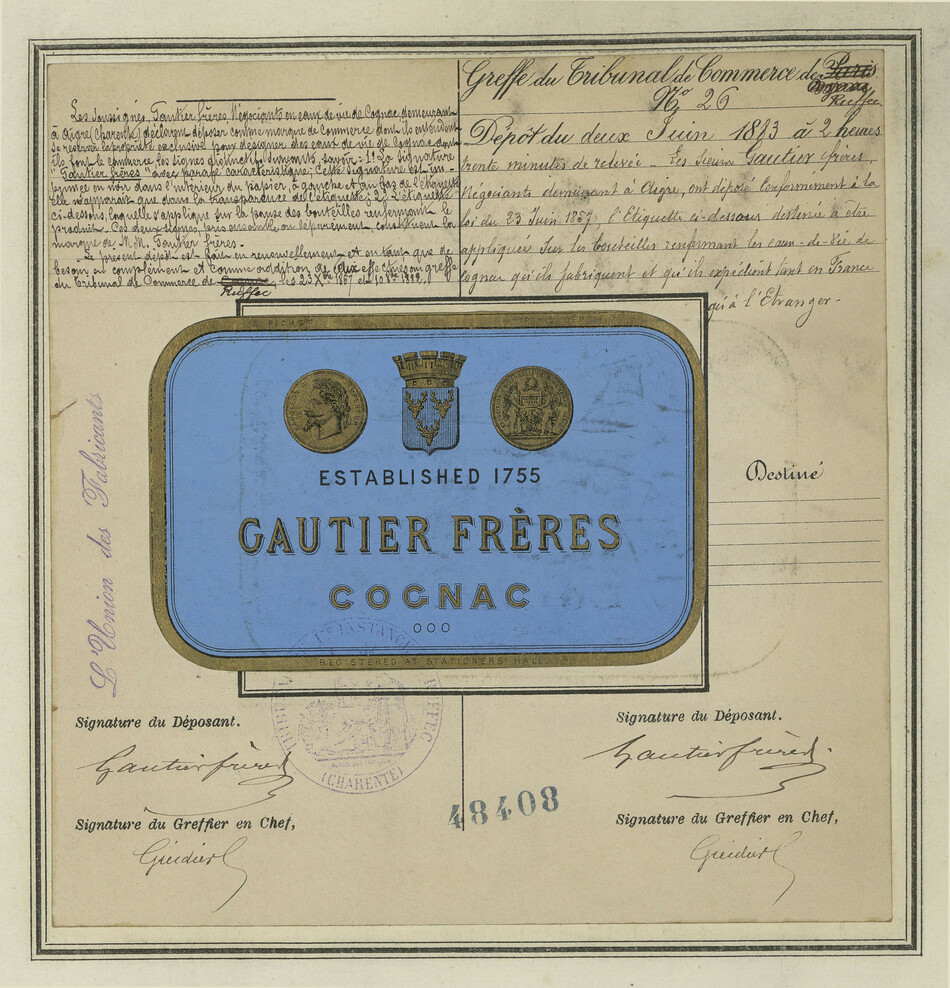 Les soussignés, Gautier frères Négociants en eaux de vie de Cognac, demeurant
à Aigre (Charente) déclarent déposer comme marque de Commerce dont ils entendent
se réserver la propriété exclusive pour désigner des eaux de vie de Cognac dont
ils font le commerce les signes distinctifs suivants, savoir: 1° La signature
"Gautier frères" avec parafe caractéristique; cette signature est im-
primée en noir dans l'intérieur du papier, à gauche et au bas de l'étiquette
elle n'apparait que dans la transparence de l'étiquette; 2° L'étiquette
ci-dessous, laquelle s'applique sur la panse des bouteilles renfermant le
produit. Ces deux signes, pris ensemble ou séparément, constituent la
marque de M.M. Gautier frères.
Le présent dépôt est fait en renouvellement et en tant que de
besoin en complément et comme addition de
du Tribunal de Commerce de Ruffec, les 23 Xbre 1867 et
Greffe du Tribunal de Commerce de Paris
Cognac
Ruffec
No 26
Dépôt du deux Juin 1883 à 2 heures
trente minutes de relevée. Les Sieurs Gautier frères,
Négociants demeurant à Aigre, ont déposé Conformément à la
loi du 23 Juin 1857, l'Etiquette ci-dessous destinée à être
appliquée sur les bouteilles renfermant les eaux-de-vie de
Cognac qu'ils fabriquent et qu'ils expédient tant en France
qu'à l'Etranger-
L'Union des Fabricants
ESTABLISHED 1755
GAUTIER FRÈRES
COGNAC
REGISTERED AT STATIONERS' HALL
Destiné
INSTANCE
RUFFEC
(CHARENTE)
Signature du Déposant.
Gautier frères
Signature du Greffier en Chef,
48408
Signature du Déposant.
Gautier frères
Signature du Greffier en Chef,